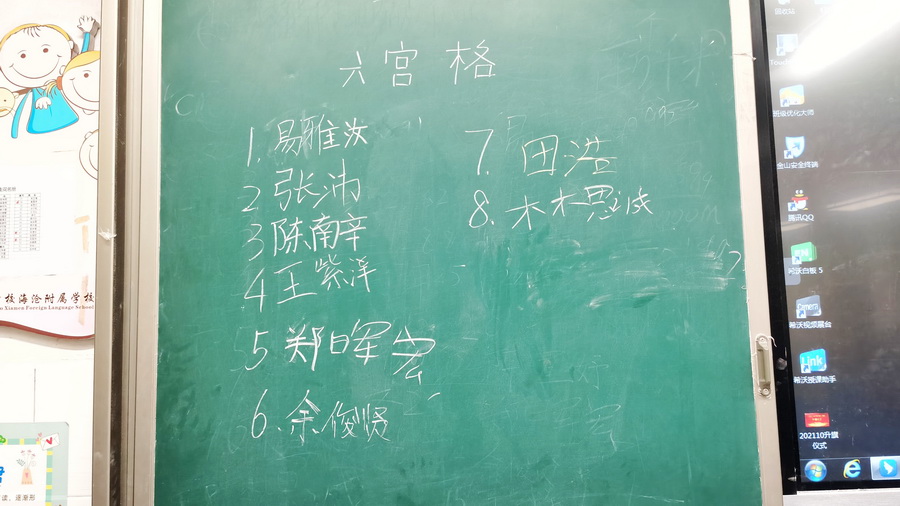 六宫格
1.易雅汝
2 张沛
3 陈南辛
4 王紫洋
5 郑晖宏
6、余俊贤
7. 田浩
8. 林思诚
校海沧附属学校
Xiamen Foreign Language School
班级优化大师
金山安全终端
腾讯QQ
希沃白板 5
Camera
希沃视频展台
Link
希沃授课助手
202110升旗
仪式
读、逐渐形